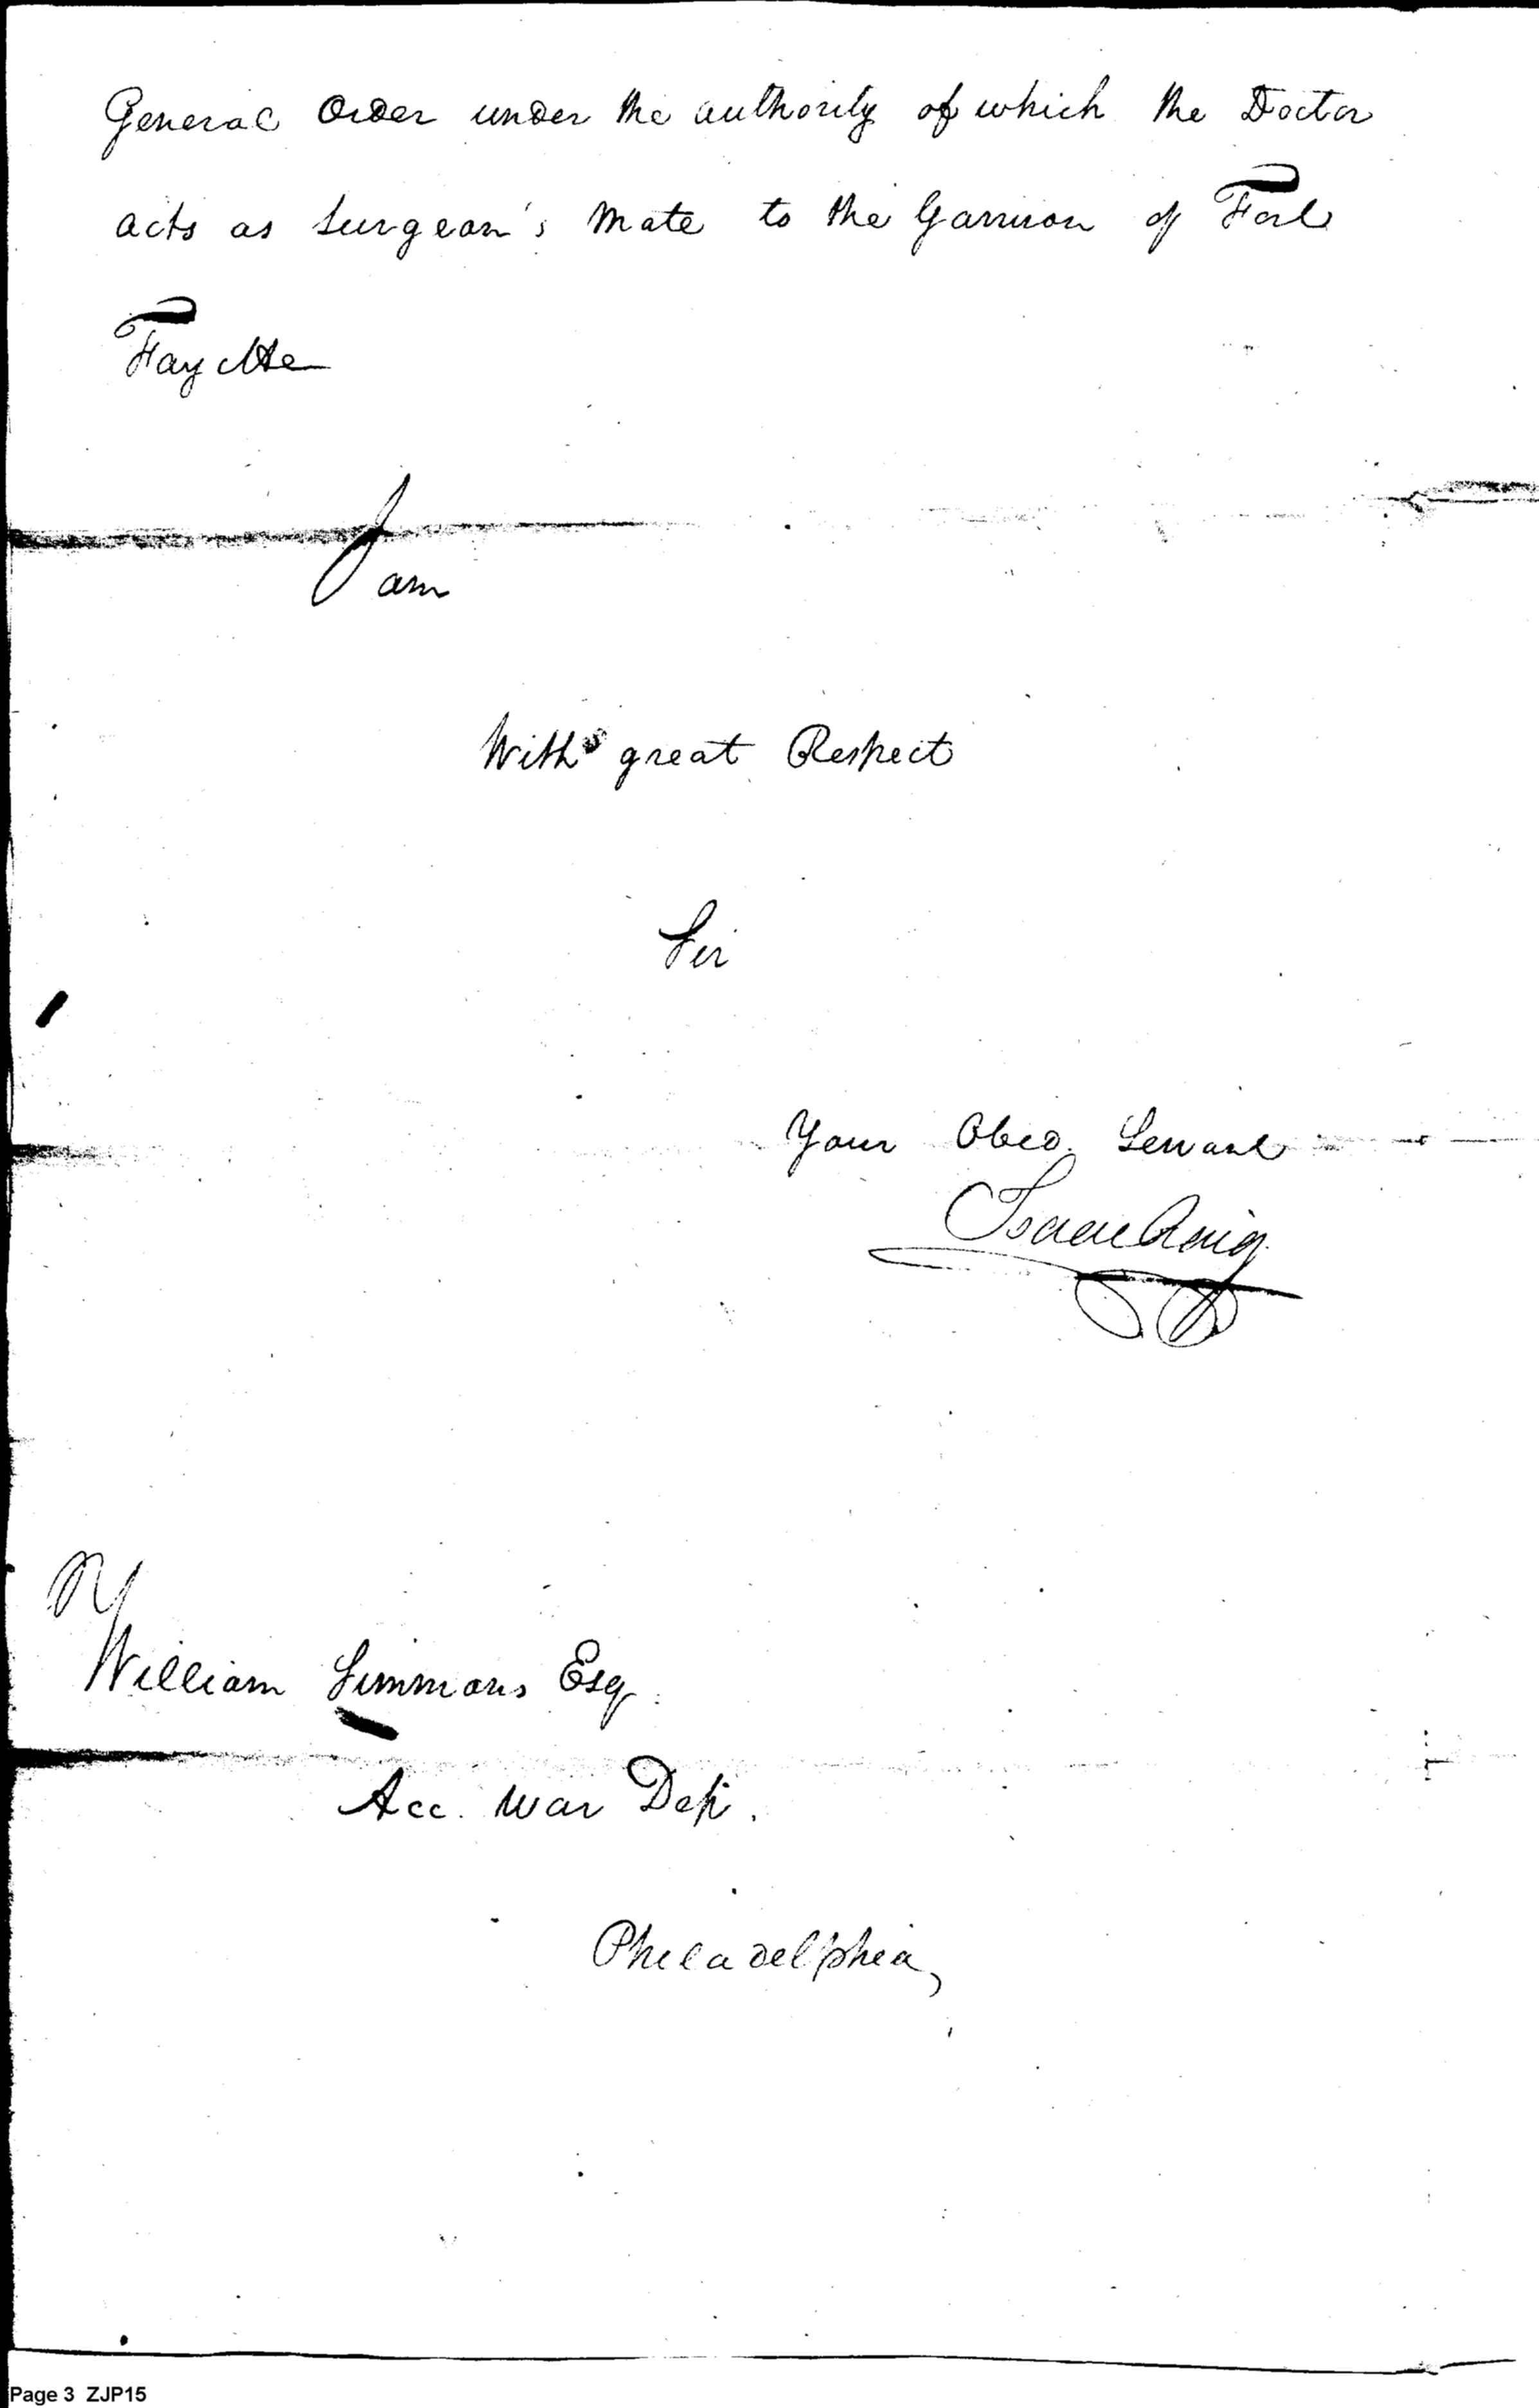 General Order under the authority of which the Doctor
acts as Surgeon's Mate to the Garrison of Fort
Fayette
I am
With great Respect
Sir
Your Obed. Servant
Isaac Craig
William Simmons Esq.
Acc. War Dep.
Philadelphia,
Page 3 ZJP15